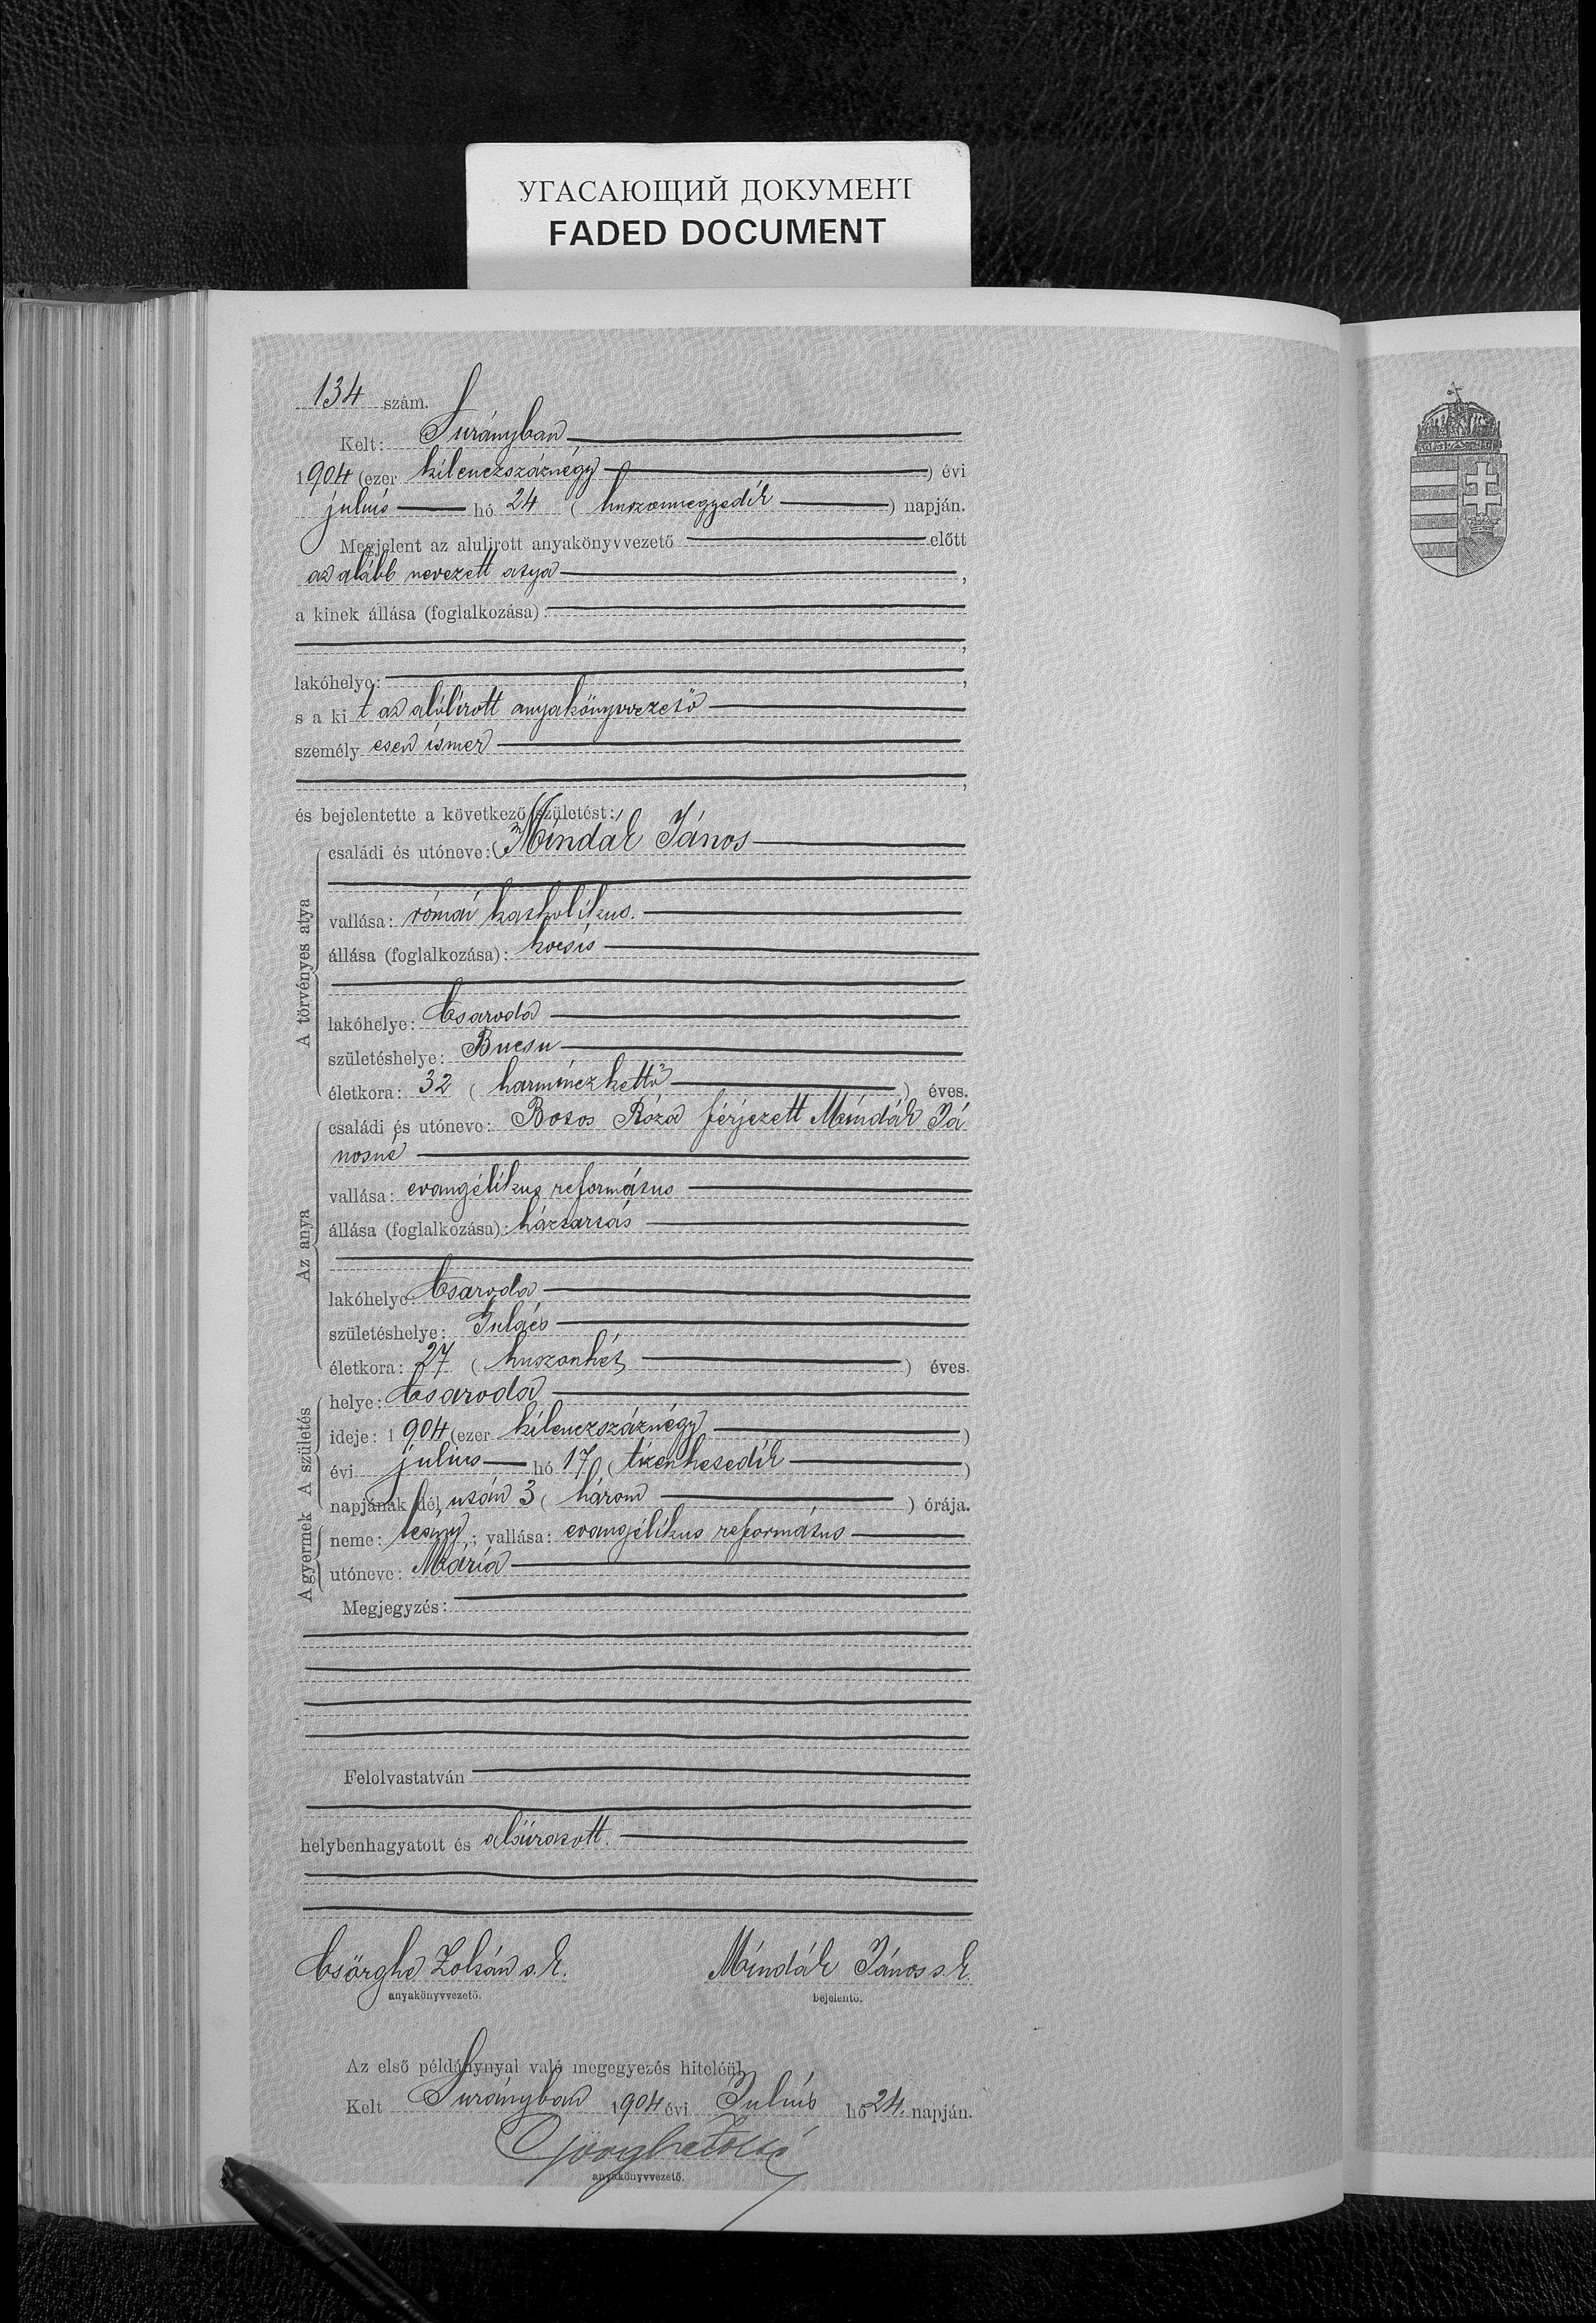 УГАСАЮЩИЙ ДОКУМЕНТ
FADED DOCUMENT
134 szám.
Kelt: Surányban
1904 (ezer kilenczszáznégy) évi
julius hó 24 (huszonnegyedik) napján.
Megjelent az alulirott anyakönyvvezető előtt
az alább nevezett atya,
a kinek állása (foglalkozása):
,
lakóhelye: ,
s a kit az alólirott anyakönyvvezető
személyesen ismer
,
és bejelentette a következő születést:
A törvényes atya
családi és utóneve: Mindák János
vallása: római katholikus.
állása (foglalkozása): kocsis
lakóhelye: Csaroda
születéshelye: Bucsu
életkora: 32 (harminczkettő) éves.
Az anya
családi és utóneve: Botos Róza férjezett Mindák Já
nosné
vallása: evangélikus református
állása (foglalkozása): háztartás
lakóhelye: Csaroda
születéshelye: Gulács
életkora: 27 (huszonhét) éves.
A születés
helye: Csaroda
ideje: 1904 (ezer kilenczszáznégy)
évi julius hó 17 (tizenhetedik)
napjának dél után 3 (három) órája.
A gyermek
neme: leány; vallása: evangélikus református
utóneve: Mária
Megjegyzés:
Felolvastatván
helybenhagyatott és aláiratott.
Csörghe Zoltán s. k. Mindák János s. k.
anyakönyvvezető. bejelentő.
Az első példánynyal való megegyezés hiteléül
Kelt Surányban 1904 évi Julius hó 24. napján.
anyakönyvvezető.